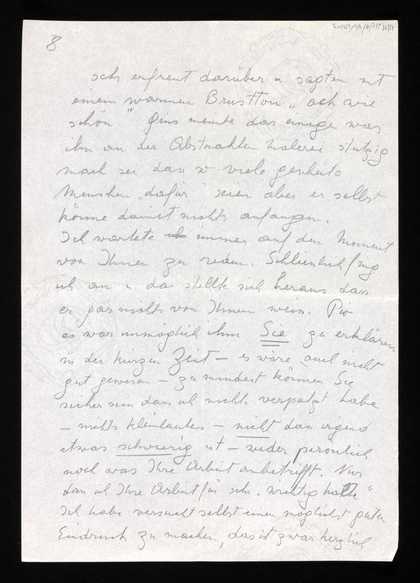 8
sehr erfreut darüber u sagten mit
einem warmen Brustton „ach wie
schön" meinte das einzige was
ihn an der Abstrakten Malerei stutzig
mach sei das so viele gescheite
Menschen dafür seien aber er selbst
könne damit nichts anfangen.
Ich wartete immer auf den Moment
von Ihnen zu reden. Schliesslich fing
ich an u da stellte sich heraus dass
er gar nichts von Ihnen weiss.
es war unmöglich ihm Sie zu erklären
in der kurzen Zeit – es wäre auch nicht
gut gewesen – zu mindest können Sie
sicher sein dass ich nichts verpatzt habe
– nichts – nicht dass irgend
etwas schwierig ist – weder persönlich
noch was Ihre Arbeit anbetrifft. Nur
dass ich Ihre Arbeit für sehr „wichtig halte"
Ich habe versucht selbst einen möglichst guten
Eindruck zu machen, das ist zwar